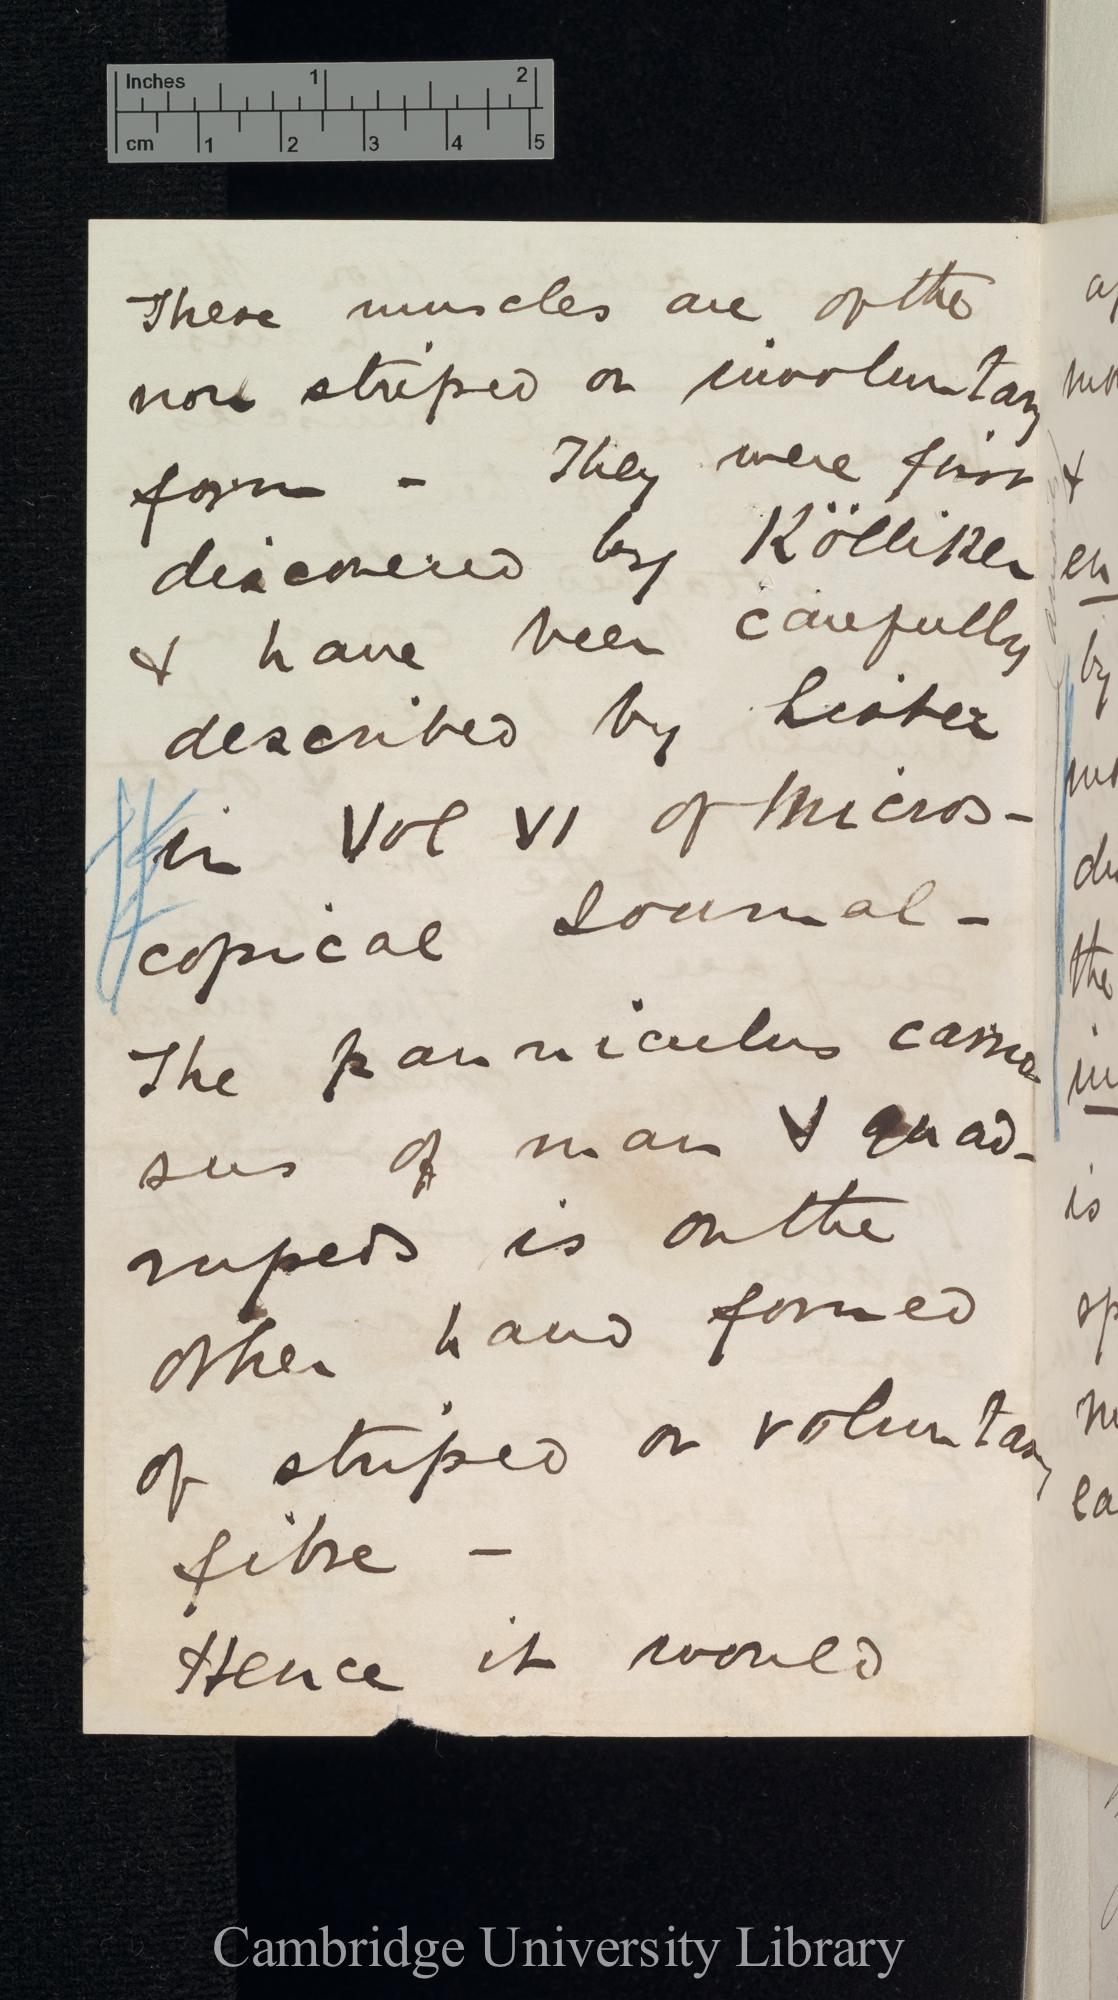 Inches 1 2
cm 1 2 3 4 5
These muscles are of the
non striped or involuntary
form - They were first
discovered by Kölliker
& have been carefully
described by Lister
in Vol VI of Micros-
copical Journal -
The panniculus carno
sus of man & quad-
rupeds is on the
other hand formed
of striped or voluntary
fibre -
Hence it would
&
by
the
in
is
Cambridge University Library